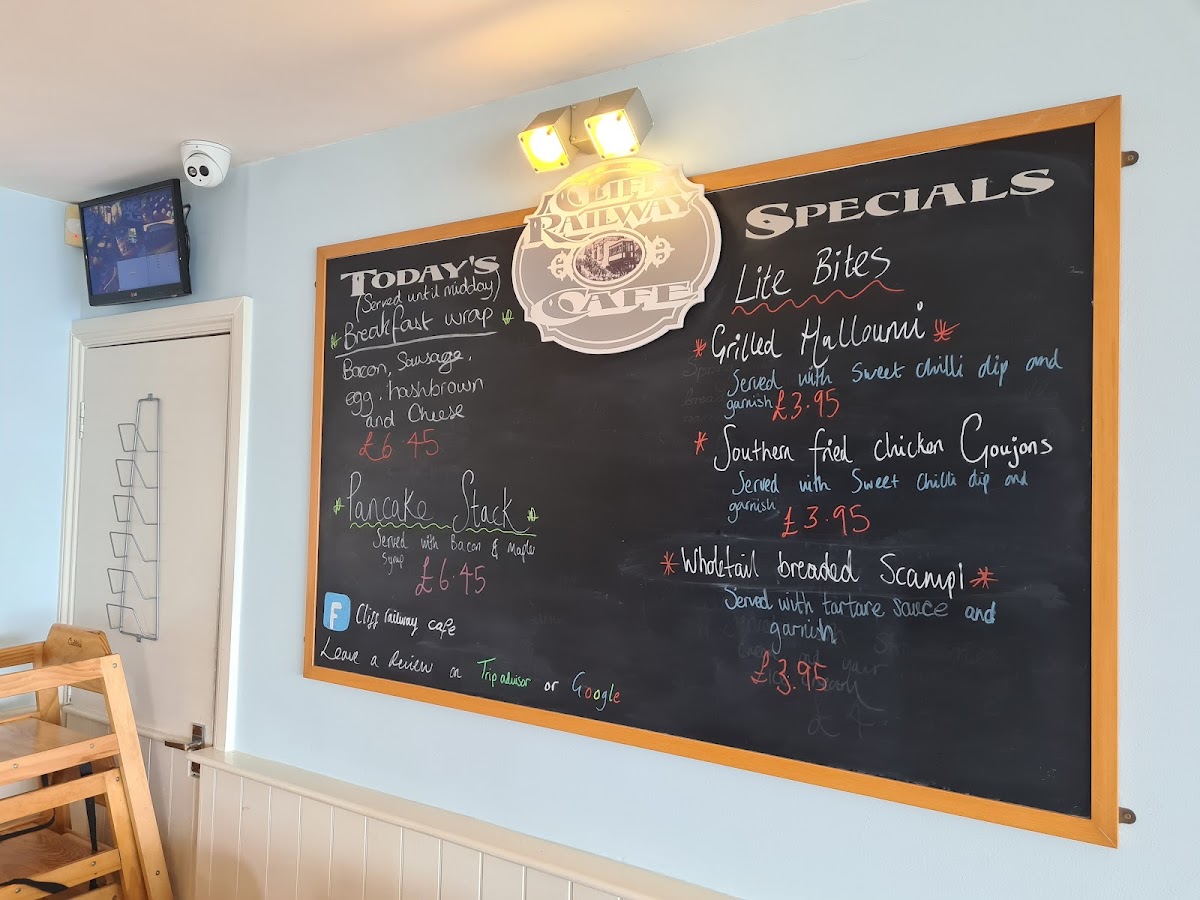 CLIFF
RAILWAY
CAFE
TODAY'S
(Served until midday)
Breakfast wrap
Bacon, Sausage,
egg, hashbrown
and Cheese
£6.45
Pancake Stack
Served with Bacon & Maple
Syrup
£6.45
F Cliff railway cafe
Leave a Review on Tripadvisor or Google
SPECIALS
Lite Bites
Grilled Halloumi
Served with Sweet chilli dip and
garnish £3.95
Southern fried chicken Goujons
Served with Sweet chilli dip and
garnish
£3.95
Wholetail breaded Scampi
Served with tartare sauce and
garnish
£3.95